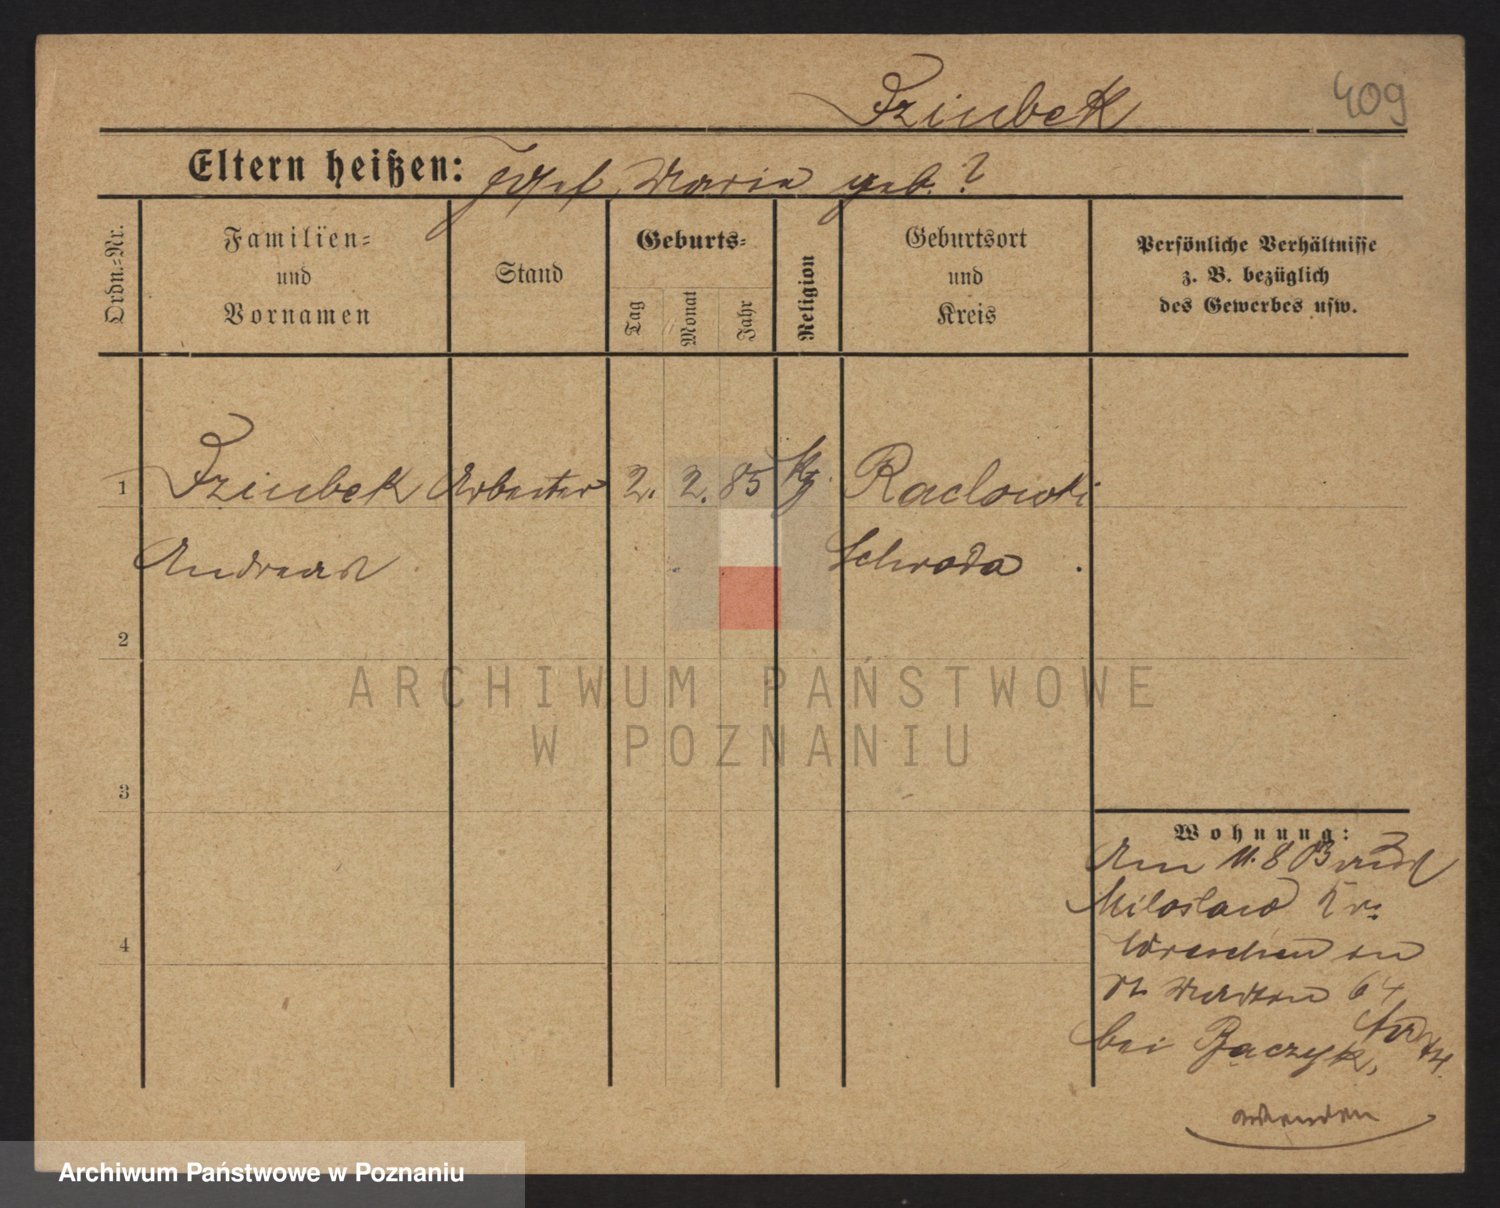 Dziubek 409
Eltern heißen: Josef, Maria geb. ?
Ordn.-Nr.
Familien-
und
Vornamen
Stand
Geburts-
Tag
Monat
Jahr
Religion
Geburtsort
und
Kreis
Persönliche Verhältnisse
z. B. bezüglich
des Gewerbes usw.
1 Dziubek Arbeiter 2. 2. 85 Kt. Raclowki
Andreas Schroda
2
3
4
Wohnung:
Am 11.8
Miloslaw Krs.
Wreschen
St. Martin 64
bei
wenden
ARCHIWUM PAŃSTWOWE
W POZNANIU
Archiwum Państwowe w Poznaniu